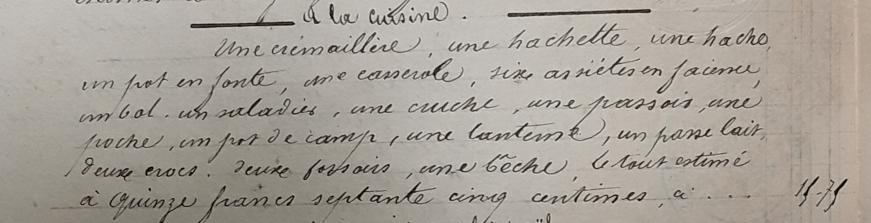 à la cuisine.
Une crémaillère, une hachette, une hache,
un pot en fonte, une casserole, six assiétes en faience,
un bol. un saladier, une cruche, une passois, une
poche, un pot de camp, une lanterne, un passe lait,
deux crocs. deux fossois, une bêche, le tout estimé
à quinze francs septante cinq centimes, ci . . . 15-75